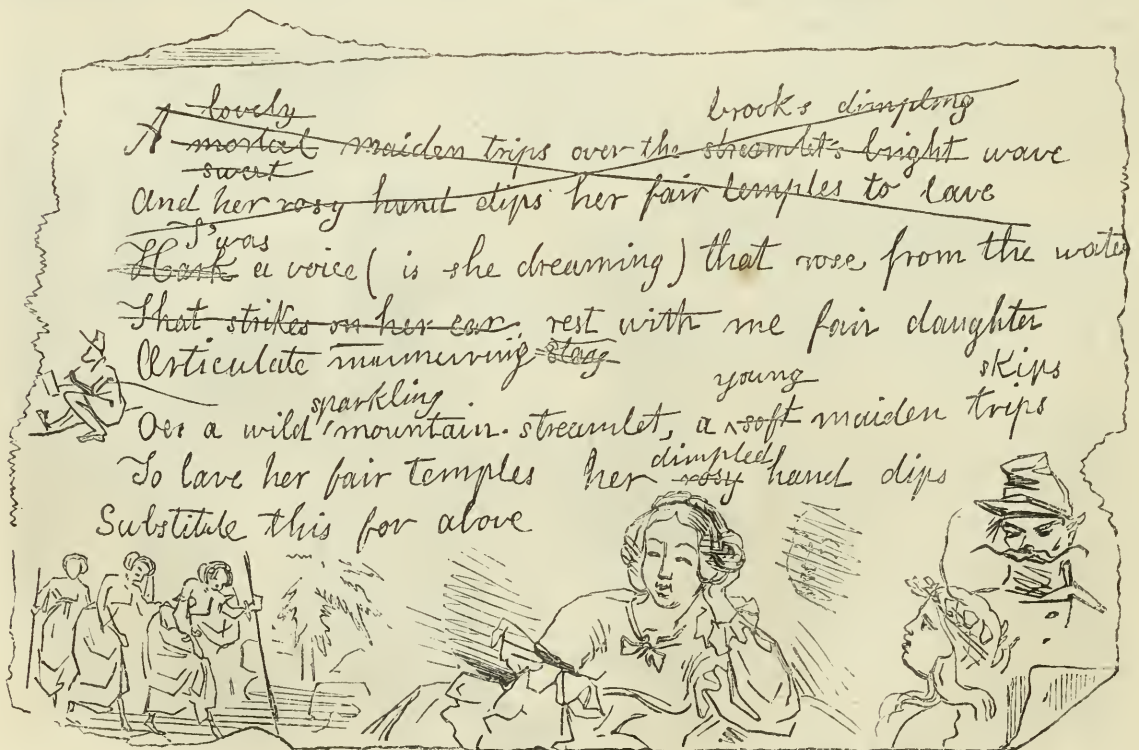 lovely brook's dimpling
A mortal maiden trips over the streamlet's bright wave
sweet
And her rosy hand dips her fair temples to lave
T'was
Hark a voice ( is she dreaming ) that rose from the water
That strikes on her ear, rest with me fair daughter
Articulate murmuring stay
young skips
sparkling
Oer a wild mountain-streamlet, a soft maiden trips
dimpled
To lave her fair temples her rosy hand dips
Substitute this for above